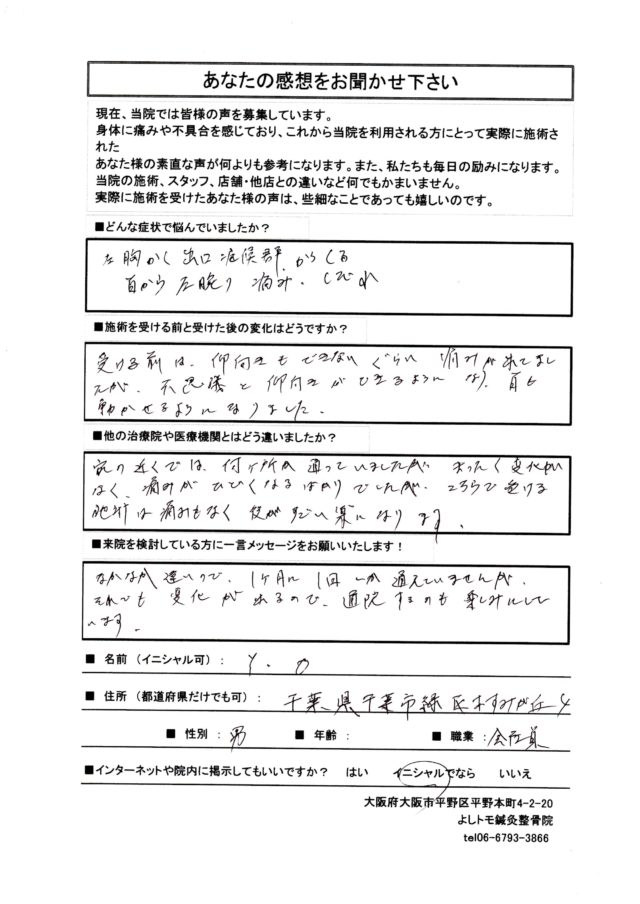 あなたの感想をお聞かせ下さい
現在、当院では皆様の声を募集しています。
身体に痛みや不具合を感じており、これから当院を利用される方にとって実際に施術さ
れた
あなた様の素直な声が何よりも参考になります。また、私たちも毎日の励みになります。
当院の施術、スタッフ、店舗・他店との違いなど何でもかまいません。
実際に施術を受けたあなた様の声は、些細なことであっても嬉しいのです。
■どんな症状で悩んでいましたか?
左胸かく出口症候群からくる
首から左腕の痛み、しびれ
■施術を受ける前と受けた後の変化はどうですか?
受ける前は、仰向きもできないぐらい痛みが出てまし
たが、不思議と仰向きができるようになり、首も
動かせるようになりました。
■他の治療院や医療機関とはどう違いましたか?
家の近くでは、何ヶ所か通っていましたが、まったく変化が
なく、痛みがひどくなるばかりでしたが、こちらで受ける
施術は痛みもなく 体がすごい楽になります。
■来院を検討している方に一言メッセージをお願いいたします!
なかなか遠いので、1ヶ月に1回しか通えていませんが、
それでも変化が出るので、通院するのも楽しみにして
います。
■ 名前(イニシャル可): Y. カ
■ 住所(都道府県だけでも可): 千葉県千葉市緑区あすみが丘4
■ 性別: 男 ■ 年齢: ■ 職業: 会社員
■インターネットや院内に掲示してもいいですか? はい イニシャルでなら いいえ
大阪府大阪市平野区平野本町4-2-20
よしトモ鍼灸整骨院
tel06-6793-3866